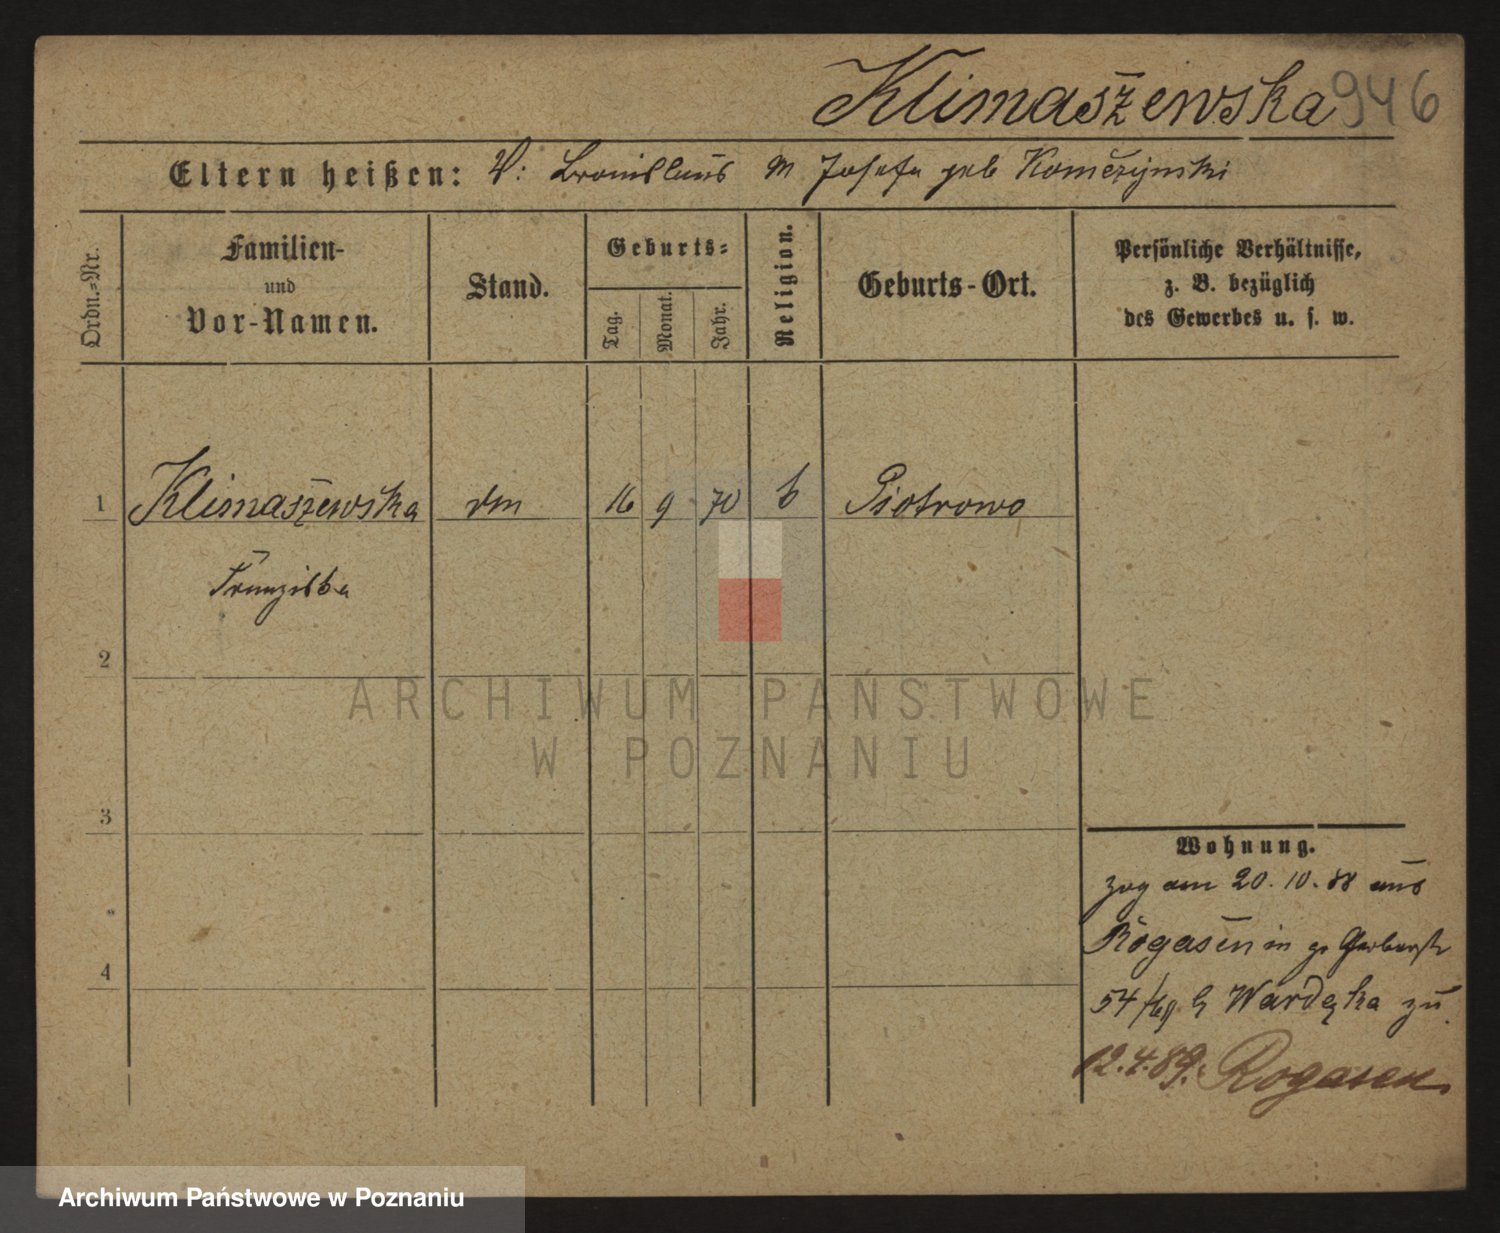 Klimaszewska 946
Eltern heißen: V: Bronislaus M Josefa geb
Ordn.-Nr.
Familien-
und
Vor-Namen.
Stand.
Geburts-
Tag.
Monat.
Jahr.
Religion.
Geburts-Ort.
Persönliche Verhältnisse,
z. B. bezüglich
des Gewerbes u. s. w.
1 Klimaszewska 16 9 70 Piotrowo
Franziska
2
3
4
Wohnung.
zog am 20.10.88 aus
Rogasen in gr Gerberstr
54 zu
12.4.89. Rogasen
ARCHIWUM PAŃSTWOWE
W POZNANIU
Archiwum Państwowe w Poznaniu